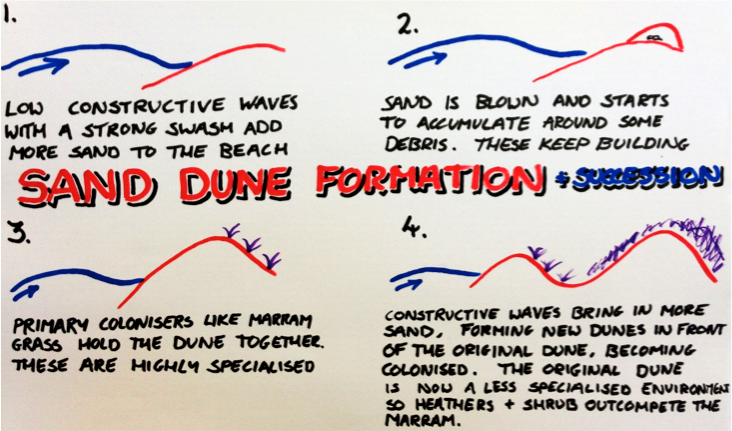 1.
LOW CONSTRUCTIVE WAVES
WITH A STRONG SWASH ADD
MORE SAND TO THE BEACH
2.
SAND IS BLOWN AND STARTS
TO ACCUMULATE AROUND SOME
DEBRIS. THESE KEEP BUILDING
SAND DUNE FORMATION + SUCCESSION
3.
PRIMARY COLONISERS LIKE MARRAM
GRASS HOLD THE DUNE TOGETHER.
THESE ARE HIGHLY SPECIALISED
4.
CONSTRUCTIVE WAVES BRING IN MORE
SAND, FORMING NEW DUNES IN FRONT
OF THE ORIGINAL DUNE, BECOMING
COLONISED. THE ORIGINAL DUNE
IS NOW A LESS SPECIALISED ENVIRONMENT
SO HEATHERS + SHRUB OUTCOMPETE THE
MARRAM.